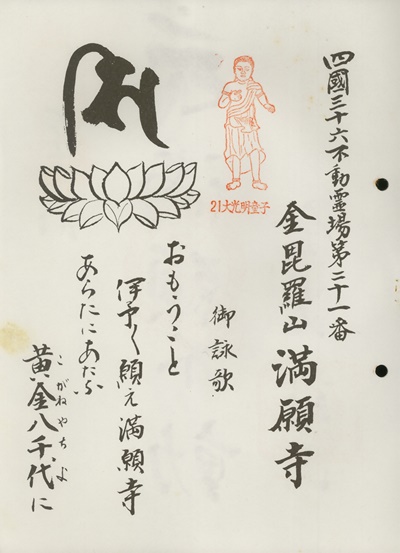 四國三十六不動霊場第二十一番
21大光明童子
金毘羅山 満願寺
御詠歌
おもうこと
伊予く願え満願寺
あらたにあたふ
黄金八千代に
こがねやちよ